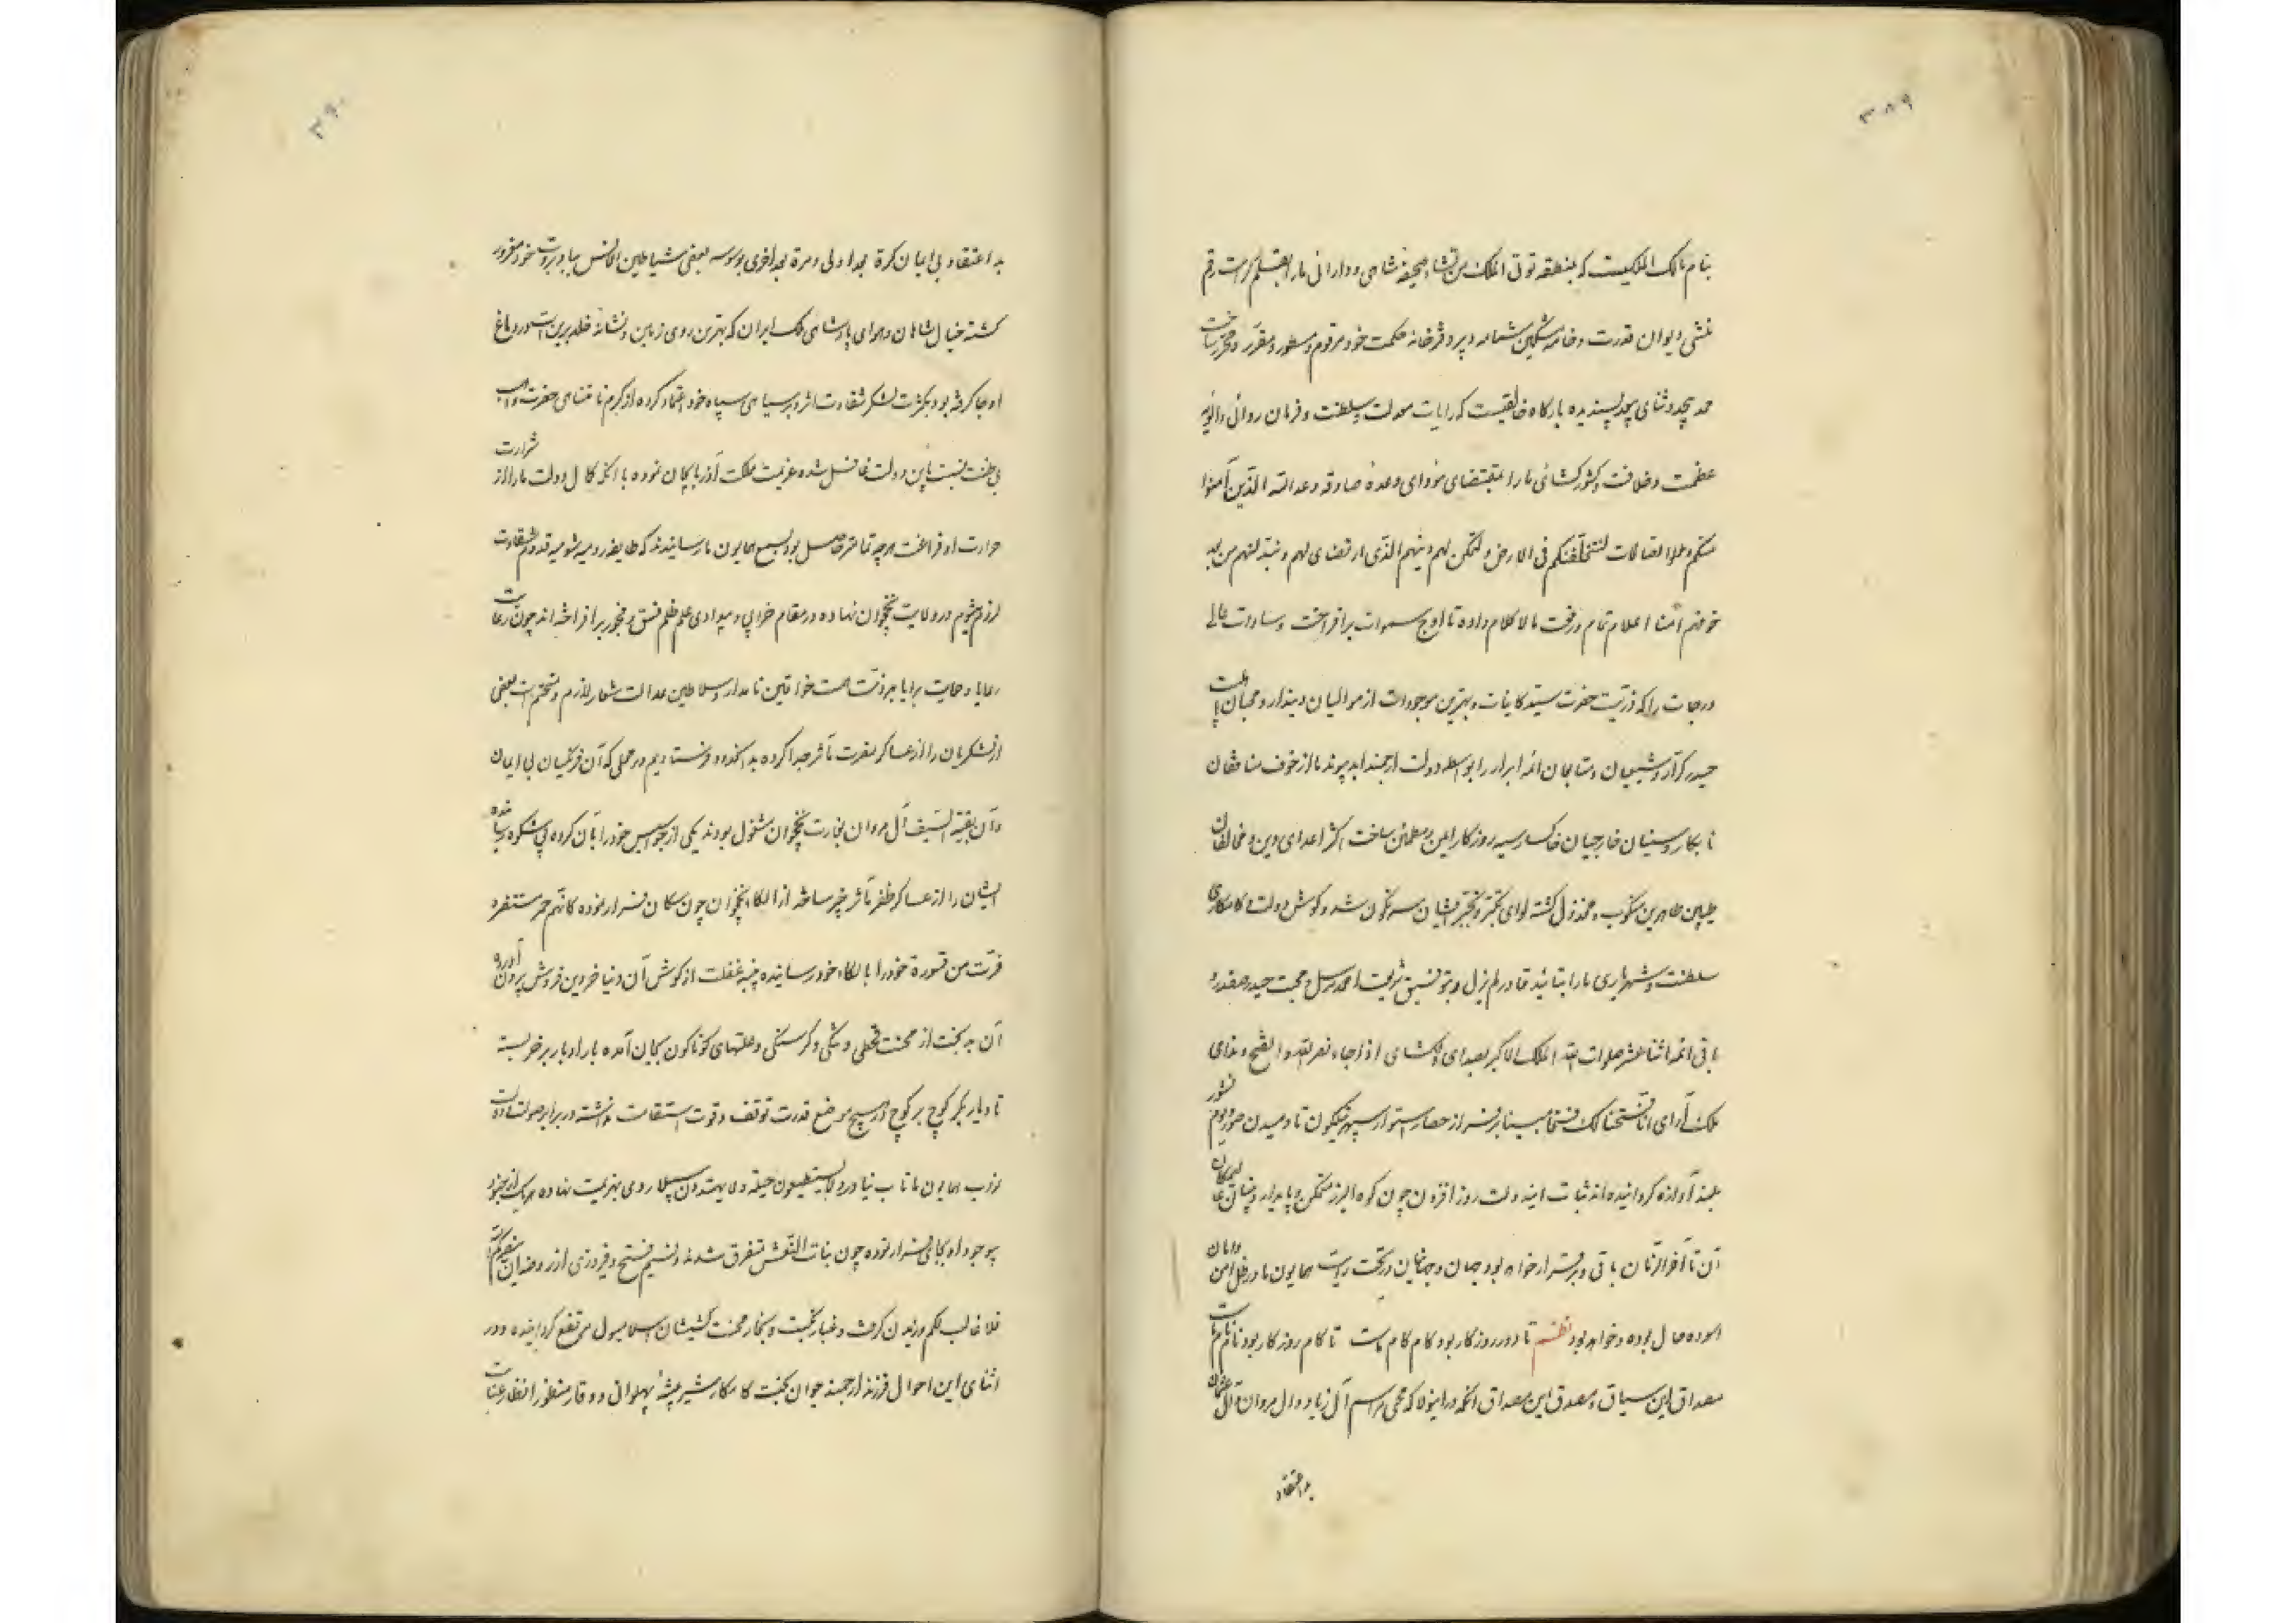 ۳۸۹
بنام مالک الملکیست که بمنطقه تؤتی الملک من تشاء صحیفه شاهی و دارائی ما را بقلم کرامت رقم
منشی دیوان قدرت و خامه مشکین شمامه دبیر دفترخانه حکمت خود مرقوم و مسطور و مقرر و محرر ساخت
حمد بیحد و ثنای بیعد پسندیده بارگاه خالقیست که رایات معدلت و سلطنت و فرمان روائی و الویه
عظمت و خلافت و کشورکشائی ما را بمقتضای مؤدای وعده صادقه وعد الله الذین آمنوا
منکم و عملوا الصالحات لنستخلفنکم فی الارض و لنمکن لهم دینهم الذی ارتضی لهم و لنبدلنهم من بعد
خوفهم امنا اعلام تمام رفعت مالاکلام داده تا اوج سموات برافراخت و سادات عالی
درجات را که ذریت حضرت سید کاینات و بهترین موجودات از موالیان دیندار و محبان اهلبیت
حیدر کرار و شیعیان و متابعان ائمه ابرار را بواسطه دولت ارجمند ابد پیوند ما از خوف منافقان
نابکار و سنیان خارجیان خاکسار سیه روزگار ایمن و مطمئن ساخت اکثر اعدای دین و مخالفان
طیبین طاهرین منکوب و مخذول گشته لوای تکبر و تجبر ایشان سرنگون شد و کوش دولت و کامکاری
سلطنت و شهریاری ما را بتائید قادر لم یزل و بتوفیق شریعت احمد مرسل و محبت حیدر صفدر و
باقی ائمه اثنا عشر صلوات الله الملک الاکبر بصدای دلکشای اذا جاء نصر الله و الفتح و ندای
ملک آرای انا فتحنا لک فتحا مبینا برفراز حصار استوار سپهر نیلگون تا دمیدن صور و یوم نشور
بلند آوازه گردانیده اند ثبات این دولت روز افزون چون کوه البرز متمکن و پایدار و بنیان عالیمکان
آن تا آخر الزمان باقی و برقرار خواهد بود جهان و جهانیان در تحت رایت همایون ما در ظل امن و امان
آسوده حال بوده و خواهد بود نظم تا دور روزگار بود کام کام ماست تا کام روزگار بود نام نام ماست
مصداق این سیاق و مصدق این مصداق آنکه در اینولا که محیی مراسم آل زیاد و آل مروان آل عثمان
بد اعتقاد
۳۹۰
بد اعتقاد بی ایمان کرة بعد اولی و مرة بعد اخری بوسوسه بعضی شیاطین الانس بباد و بروت خود مغرور
گشته خیال شاهان و هوای پادشاهی ملک ایران که بهترین روی زمین و نشانه خلد برین است در دماغ
او جا گرفته بود بکثرت لشکر شقاوت اثر و بر سیاهی سپاه خود اعتماد کرده از کرم نامتناهی حضرت واهب
بی ظنت نسبت باین دولت غافل شده عزیمت مملکت آذربایجان نموده با آنکه کمال دولت ما را از شرارت
حرارت او فراغت هرچه تمامتر حاصل بود بسمع همایون ما رسانیدند که طایفه رومیه شومیه قدوم شقاوت
لزوم شوم در ولایت نخجوان نهاده در مقام خرابی و بیدادی علم ظلم فسق و فجور برافراخته اند چون رعایت
رعایا و حمایت برایا بر ذمت همت خواقین نامدار و سلاطین عدالت شعار لازم و متحتم است بعضی
از لشکریان را از عساکر نصرت مآثر جدا کرده بدانحدود فرستادیم در محلی که آن فرنگیان بی ایمان
و آن بقیة السیف آل مروان بغارت نخجوان مشغول بودند یکی از جواسیس خود را بآن گروه بی شکوه رسانیده
ایشان را از عساکر ظفر مآثر خبر ساخته از الکاء نخجوان چون سگان فرار نموده کانهم حمر مستنفره
فرت من قسورة خود را بالکاء خود رسانیده پنبه غفلت از گوش آن دنیا خر دین فروش برون آورده
آن بدبخت از محنت قحطی و تنگی و گرسنگی و علتهای گوناگون بجان آمده بار ادبار بر خر بسته
تا دیار بکر کوچ بر کوچ در هیچ موضع قدرت توقف و قوت استقامت نداشته در برابر صولت
نواب همایون ما تاب نیاورده لا یستطیعون حیلة و لا یهتدون سبیلا روی بهزیمت نهاده هر یک از جنود
بیوجود او بجائی فرار نموده چون بنات النعش متفرق شدند و نسیم فتح و فیروزی از روضه ان ینصرکم الله
فلا غالب لکم وزیدن گرفت و غبار نکبت و بخار محنت کشیشان اسلامبول مرتفع گردانیده و در
اثنای این احوال فرزند ارجمند جوان بخت کامکار شیر بیشه پهلوانی و وقار منظور انظار عنایت